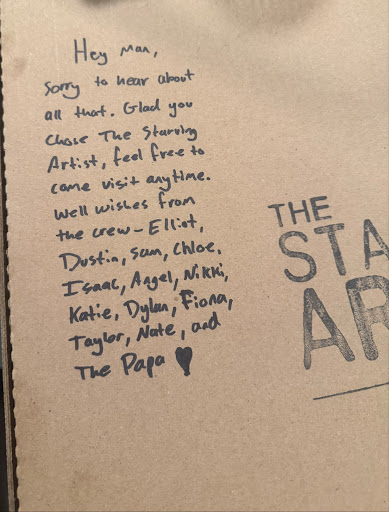 Hey man,
Sorry to hear about
all that. Glad you
chose The Starving
Artist, feel free to
come visit anytime.
Well wishes from
the crew - Elliot,
Dustin, Sam, Chloe,
Isaac, Angel, Nikki,
Katie, Dylan, Fiona,
Taylor, Nate, and
The Papa ♥
THE
STA
AR